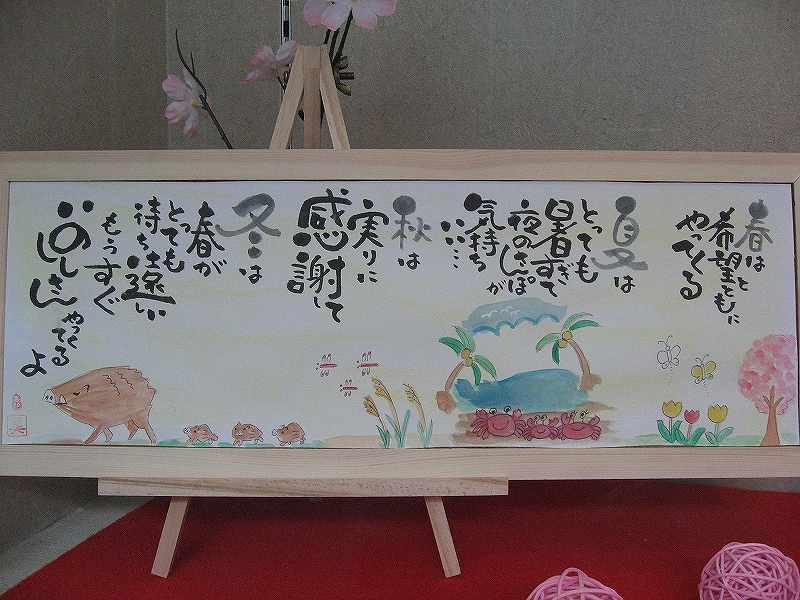 春は
希望とともに
やってくる
夏は
とっても
暑すぎて
夜のさんぽが
気持ち
いい…
秋は
実りに
感謝して
冬は
春が
とっても
待ち遠しい
もうすぐ
いのししさん
やってくるよ